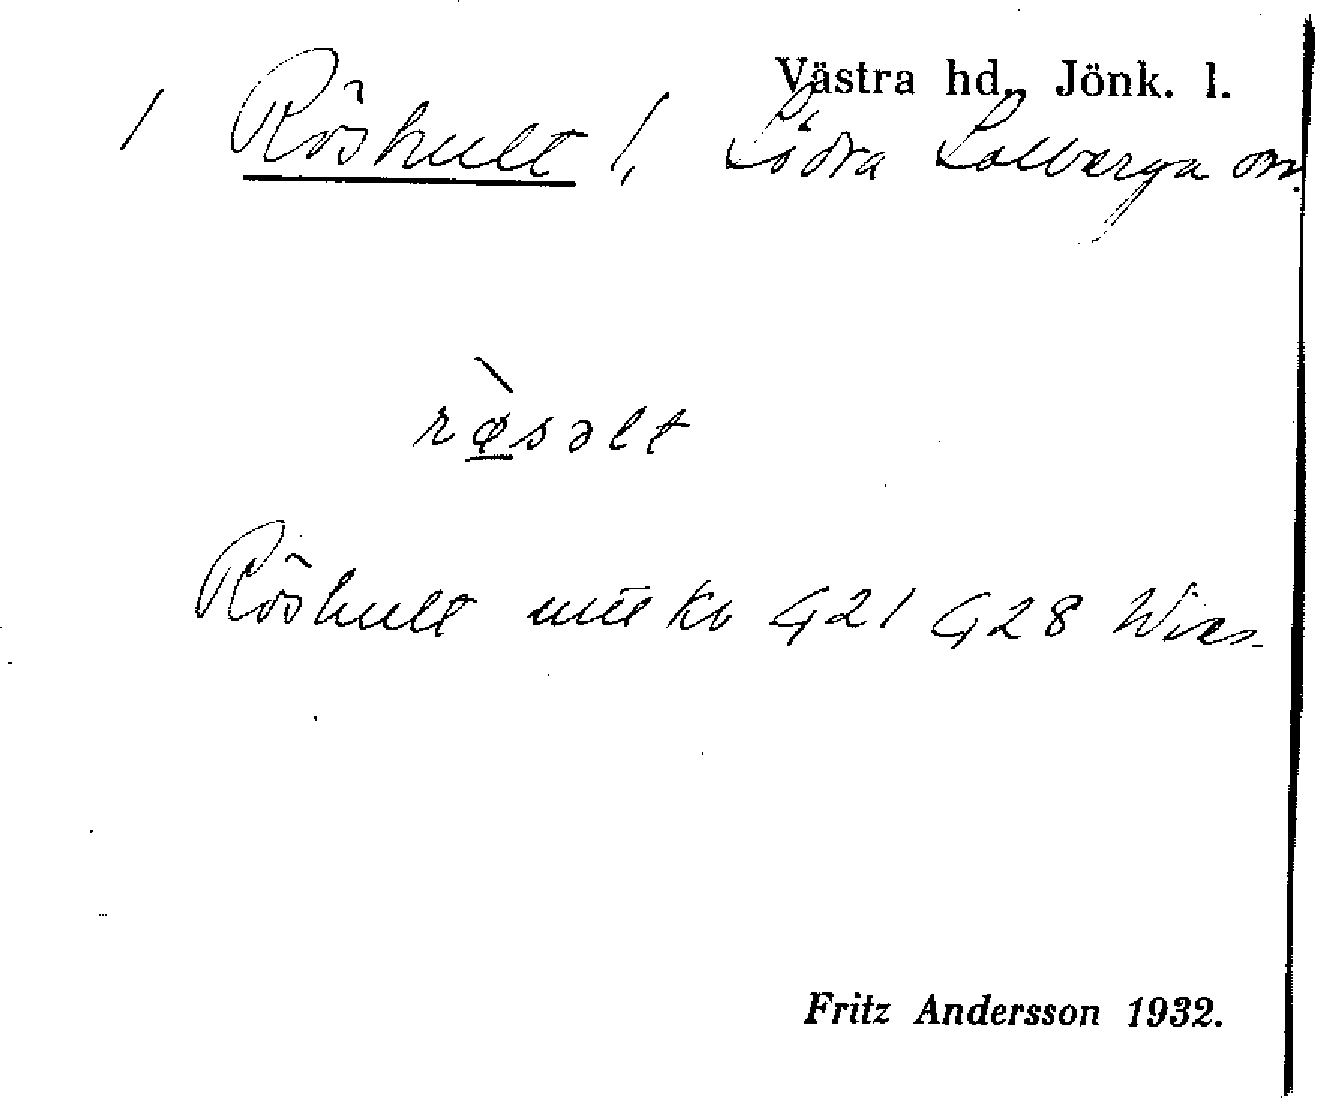 Västra hd., Jönk. l.
/ Röshult /, Södra Solberga sn.
rø̀səlt
Röshult utt kv G21 G28
Fritz Andersson 1932.